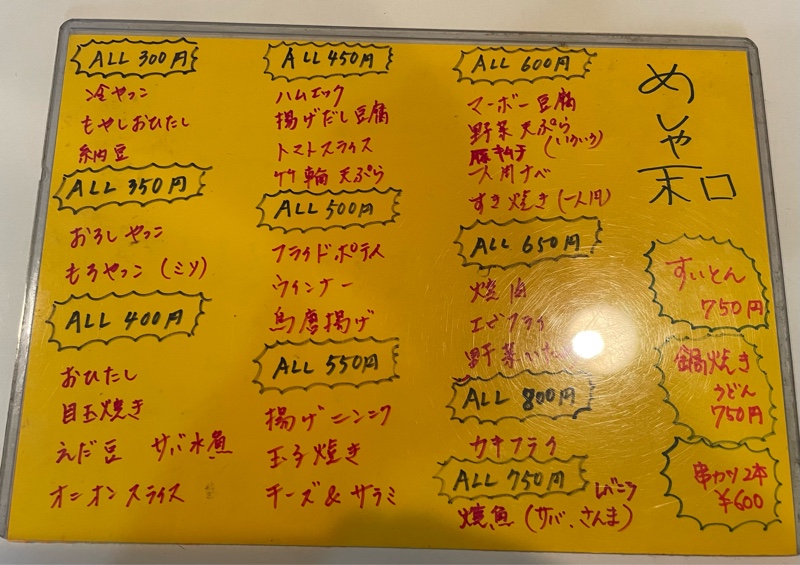 ALL 300円
冷やっこ
もやしおひたし
納豆
ALL 350円
おろしやっこ
もろやっこ（ミソ）
ALL 400円
おひたし
目玉焼き
えだ豆 サバ水煮
オニオンスライス
ALL 450円
ハムエッグ
揚げだし豆腐
トマトスライス
竹輪天ぷら
ALL 500円
フライドポテト
ウインナー
鳥唐揚げ
ALL 550円
揚げニンニク
玉子焼き
チーズ&サラミ
ALL 600円
マーボー豆腐
野菜天ぷら
豚キムチ（いろいろ）
一人用ナベ
すき焼き（一人用）
ALL 650円
焼肉
エビフライ
野菜いため
ALL 800円
カキフライ
ALL 750円
レバニラ
焼魚（サバ、さんま）
めしや
末口
すいとん
750円
鍋焼き
うどん
750円
串カツ2本
¥600